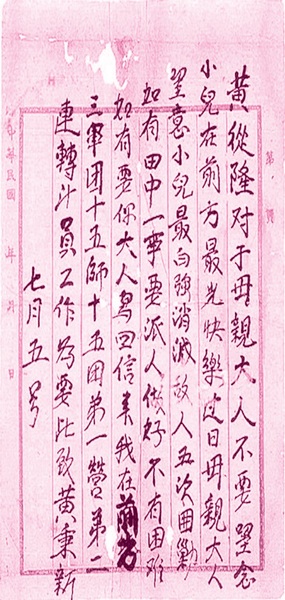 第 頁
黄從隆对于母親大人不要望念
小兒在前方最光快樂日母親大人
望意小兒最白强消滅敌人五次囲剿
如有田中一事要派人做好不有困难
如有要你大人写回信来我在前方
三軍团十五師十五团弟一营弟二
連轉斗員工作为要此致黄秉新
七月五号
華民國 年 月 日